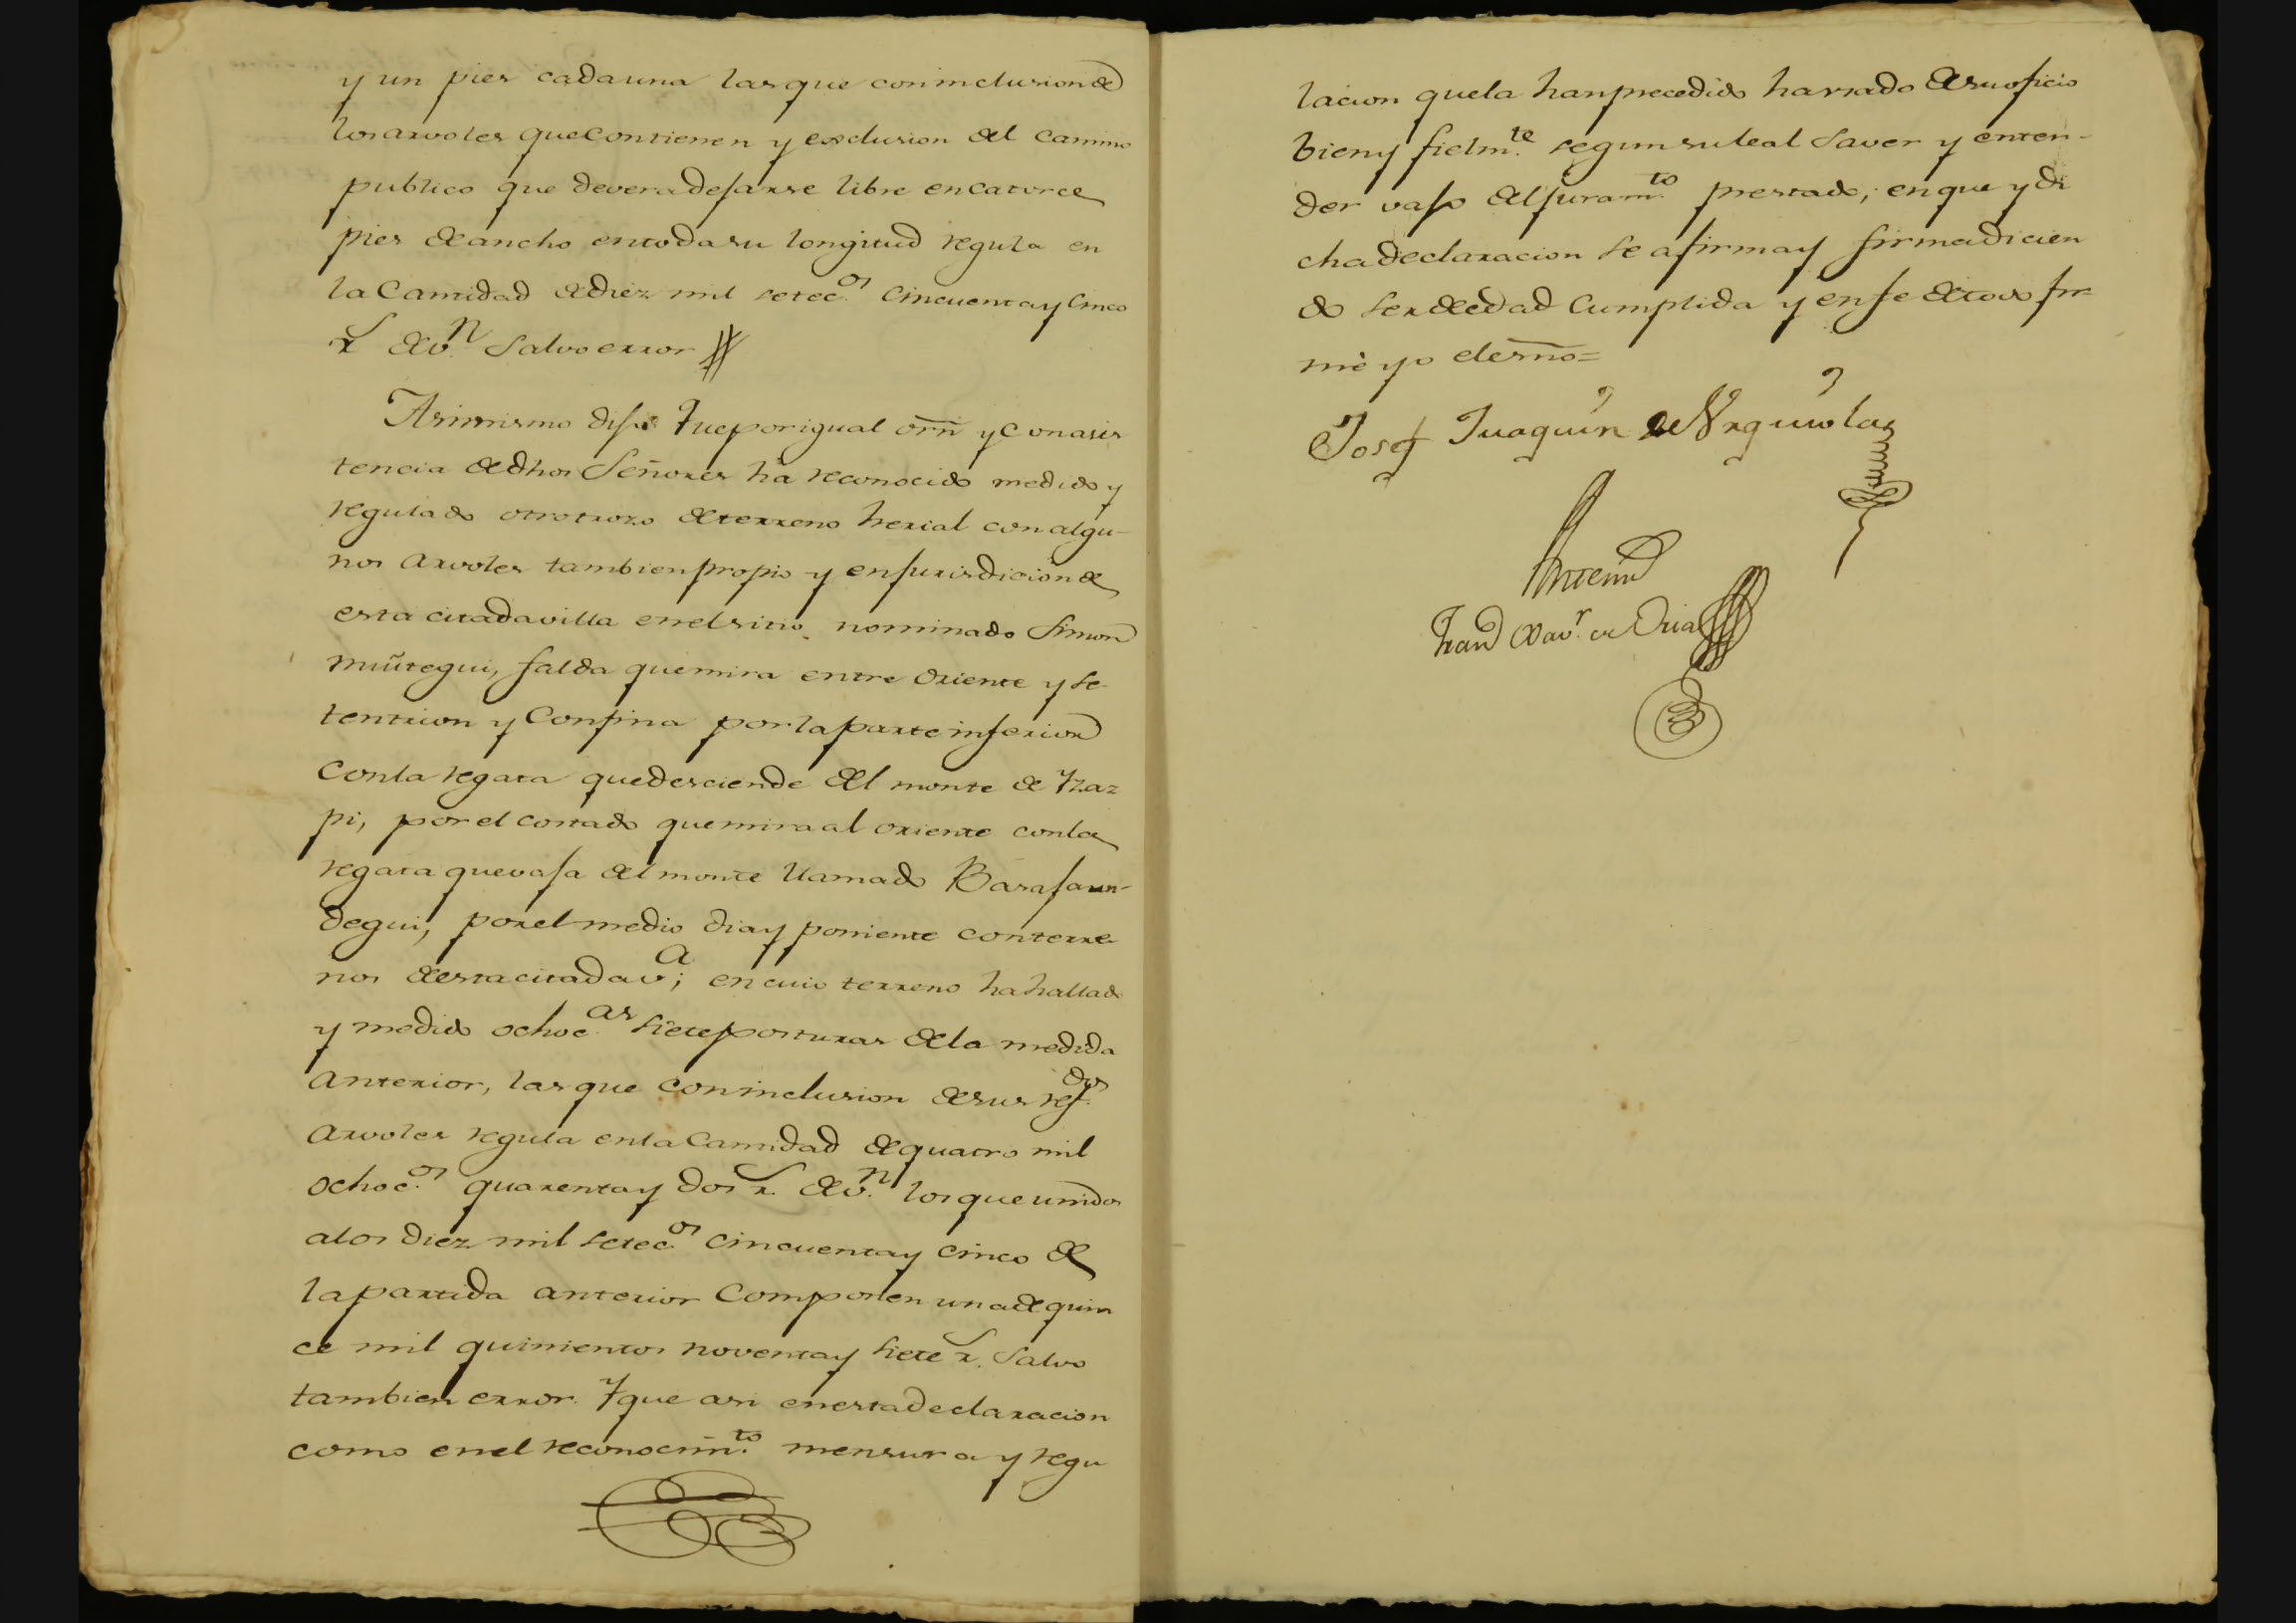 y un pies cada una las que con inclusion de
los arvoles que contienen y exclusion del camino
publico que devera dejarse libre en catorce
pies de ancho en toda su longitud regula en
la Cantidad de diez mil setec.os cincuenta y cinco
r.s de v.n salvo error
Asimismo dijo Que por igual orñ y con asis
tencia de dhos Señores ha reconocido medido y
regulado otro trozo de terreno herial con algu-
nos arvoles tambien propio y en jurisdicion de
esta citada villa en el sitio nominado Simon
muñtegui, falda que mira entre oriente y se
tentrion y Confina por la parte inferior
con la regata que desciende del monte de Yzaz
pi, por el costado que mira al oriente con la
regata que vaja del monte llamado Barajaun-
degui, por el medio dia y poniente con terre
nos de esta citada v.a; en cuio terreno ha hallado
y medido ochoc.as siete posturas de la medida
anterior, las que con inclusion de sus ref.dos
arvoles regula en la Cantidad de quatro mil
ochoc.os quarenta y dos r.s de v.n los que unidos
a los diez mil setec.os cincuenta y cinco de
la partida anterior Componen una de quin
ce mil quinientos noventa y siete r.s salvo
tambien error. Y que asi en esta declaracion
como en el reconocim.to mensura y regu
lacion que la han precedido ha usado de su oficio
bien y fielm.te segun su leal saver y enten-
der vajo del juram.to prestado, en que y di
cha declaracion se afirma y firma dicien
do ser de edad cumplida y en fe de todo fir-
mè yo el esño=
Josef Juaquin de Urquiola
Antemi
Fran.co Xav.r de Oria